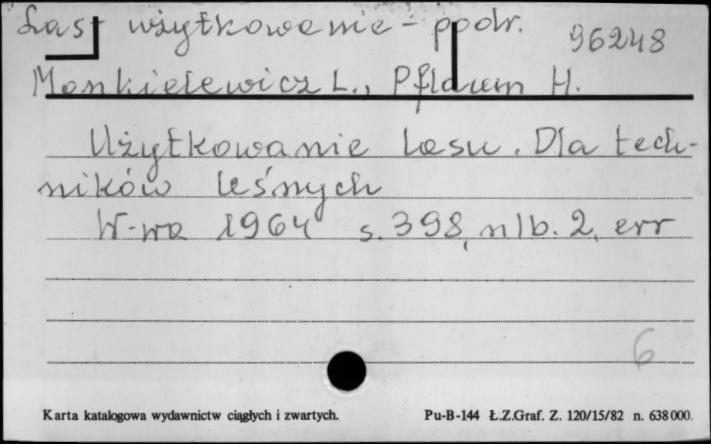 Las - użytkowanie - podr.
96248
Monkielewicz L., Pflaum H.
Użytkowanie Lasu. Dla tech-
ników leśnych
W-wa 1964 s. 398, nlb. 2, err
6
Karta katalogowa wydawnictw ciągłych i zwartych.
Pu-B-144 Ł.Z.Graf. Z. 120/15/82 n. 638000.